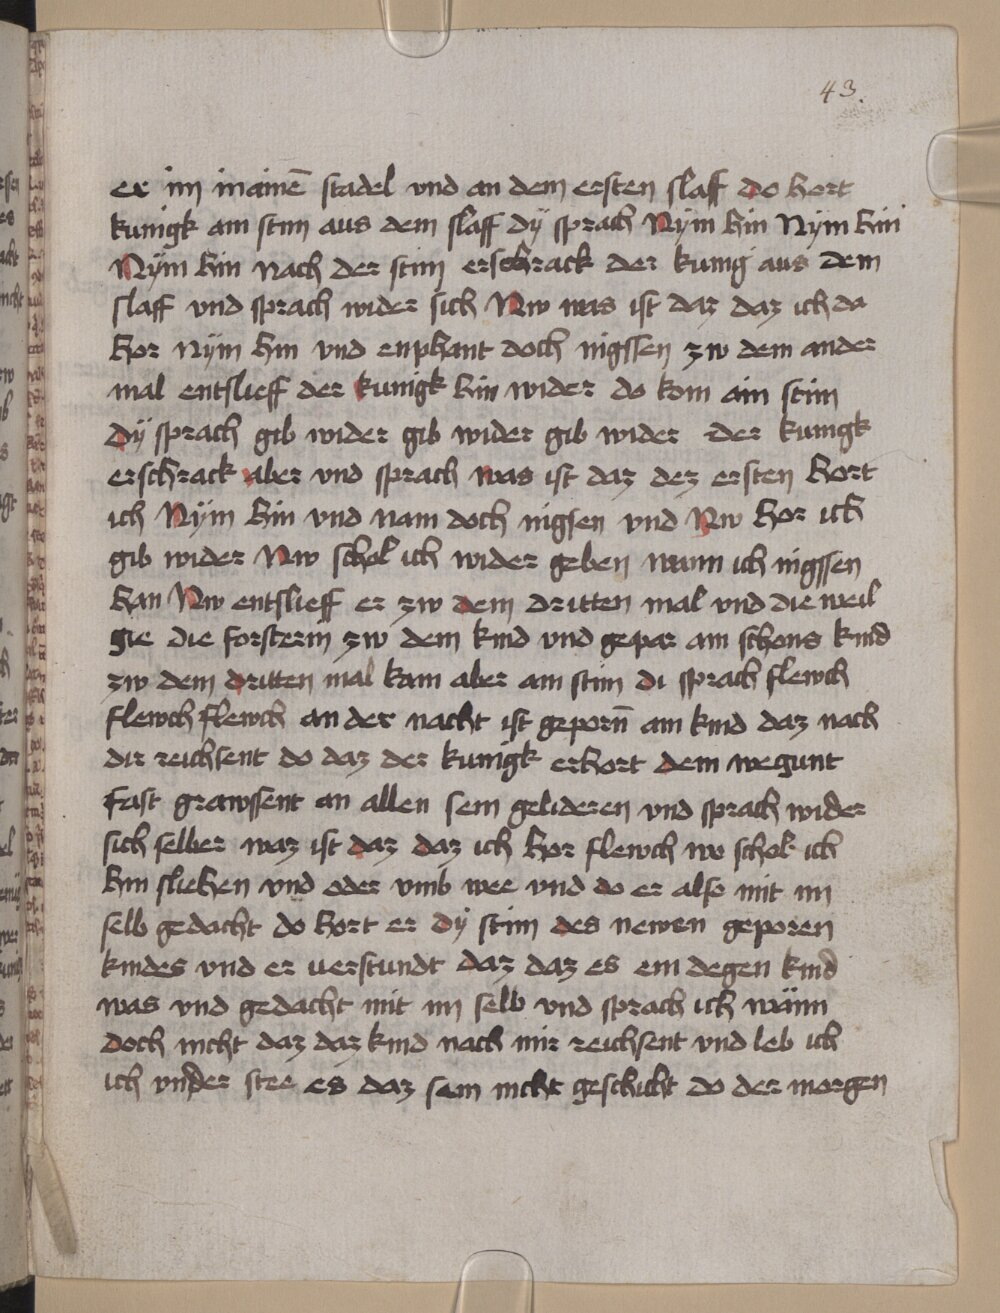 43.
er im in ainē stadel vnd an dem ersten slaff do hort
kunigk ain stim aus dem slaff dÿ sprach Nÿm hin Nÿm hin
Nÿm hin nach der stim erschrack der kunig aus dem
slaff vnd sprach wider sich Nw was ist daz daz ich do
hor nÿm hin vnd enphant doch nigssen zw dem ander
mal entslieff der kunigk hin wider do kom ain stim
dÿ sprach gib wider gib wider gib wider der kunigk
erschrack aber vnd sprach was ist daz dez ersten hort
ich Nÿm hin vnd nam doch nigsen vnd Nw hor ich
gib wider Nw schol ich wider geben wann ich nigssen
han Nw entslieff er zw dem dritten mal vnd die weil
gie die forsterin zw dem kind vnd gepar ain schons kind
zw dem dritten mal kam aber ain stim di sprach flewch
flewch flewch an der nacht ist geporn̄ ain kind daz nach
dir reichsent do daz der kunigk erhort dem wegunt
fast grawssent an allen sein gelideren vnd sprach wider
sich selber waz ist daz daz ich hor flewch wo schol ich
hin fliehen vnd oder vmb wee vnd do er also mit im
selb gedacht do hort er dÿ stim des newen geporen
kindes vnd er verstundt daz daz es ein degen kind
was vnd gedacht mit im selb vnd sprach ich wänn
doch nicht daz daz kind nach mir reichsent vnd leb ich
ich vnder stee es daz sein nicht geschicht do der morgen